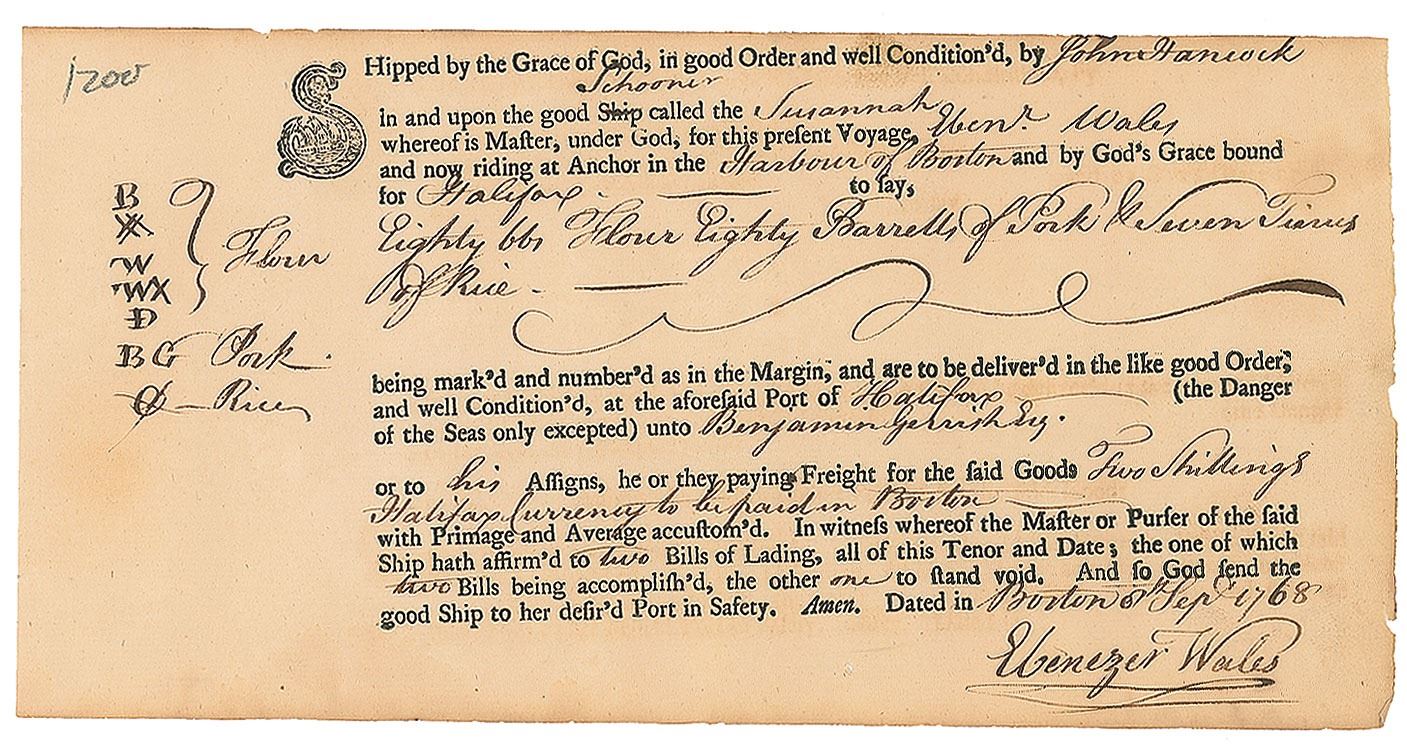 1200
SHipped by the Grace of God, in good Order and well Condition'd, by John Hancock
Schooner
in and upon the good Ship called the Susannah
whereof is Maſter, under God, for this preſent Voyage, Ebenr. Wales
and now riding at Anchor in the Harbour of Boston and by God's Grace bound
for Halifax to ſay,
Eighty bbs Flour Eighty Barrells of Pork & Seven Tierces
of Rice
B
W
WX
Flour
BG Pork
Rice
being mark'd and number'd as in the Margin, and are to be deliver'd in the like good Order,
and well Condition'd, at the aforeſaid Port of Halifax (the Danger
of the Seas only excepted) unto Benjamin Gerrish Esq.
or to his Aſſigns, he or they paying Freight for the ſaid Goods Two Shillings
Halifax Currency to be paid in Boston
with Primage and Average accuſtom'd. In witneſs whereof the Maſter or Purſer of the ſaid
Ship hath affirm'd to two Bills of Lading, all of this Tenor and Date; the one of which
two Bills being accompliſh'd, the other one to ſtand void. And ſo God ſend the
good Ship to her deſir'd Port in Safety. Amen. Dated in Boston 8th Sepr. 1768
Ebenezer Wales